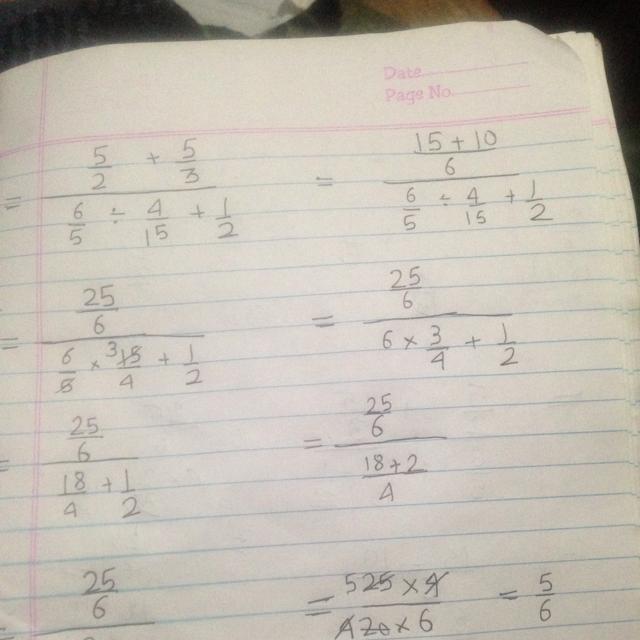 Date
Page No
= (5/2 + 5/3) / (6/5 ÷ 4/15 + 1/2) = ((15 + 10)/6) / (6/5 ÷ 4/15 + 1/2)
= (25/6) / (6/5 × 3 15/4 + 1/2) = (25/6) / (6 × 3/4 + 1/2)
= (25/6) / (18/4 + 1/2) = (25/6) / ((18 + 2)/4)
= 25/6 = (5 25 × 4) / (4 20 × 6) = 5/6